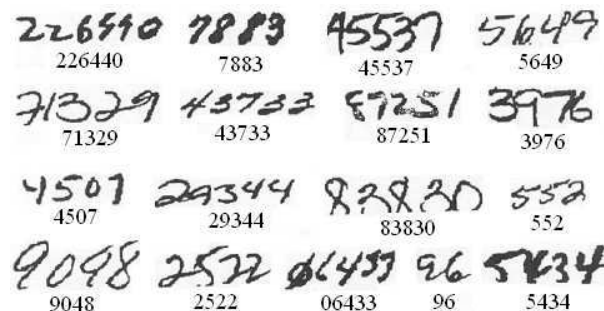 226440 7883 45537 5649
226440 7883 45537 5649
71329 43733 87251 3976
71329 43733 87251 3976
4507 29344 83830 552
4507 29344 83830 552
9048 2522 06433 96 5434
9048 2522 06433 96 5434